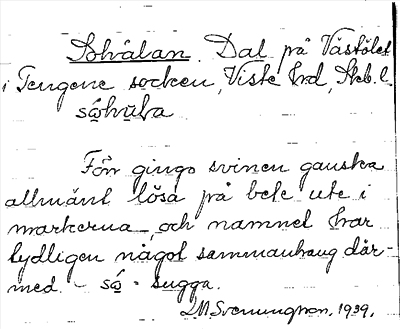 Sohålan. Dal på Västölet
i Tengene socken, Viste hrd, Skb. l.
såhula
Förr gingo svinen ganska
allmänt lösa på bete ute i
markerna, och namnet har
tydligen något sammanhang där-
med - så - sugga.
L.M. Svenungsson. 1939.